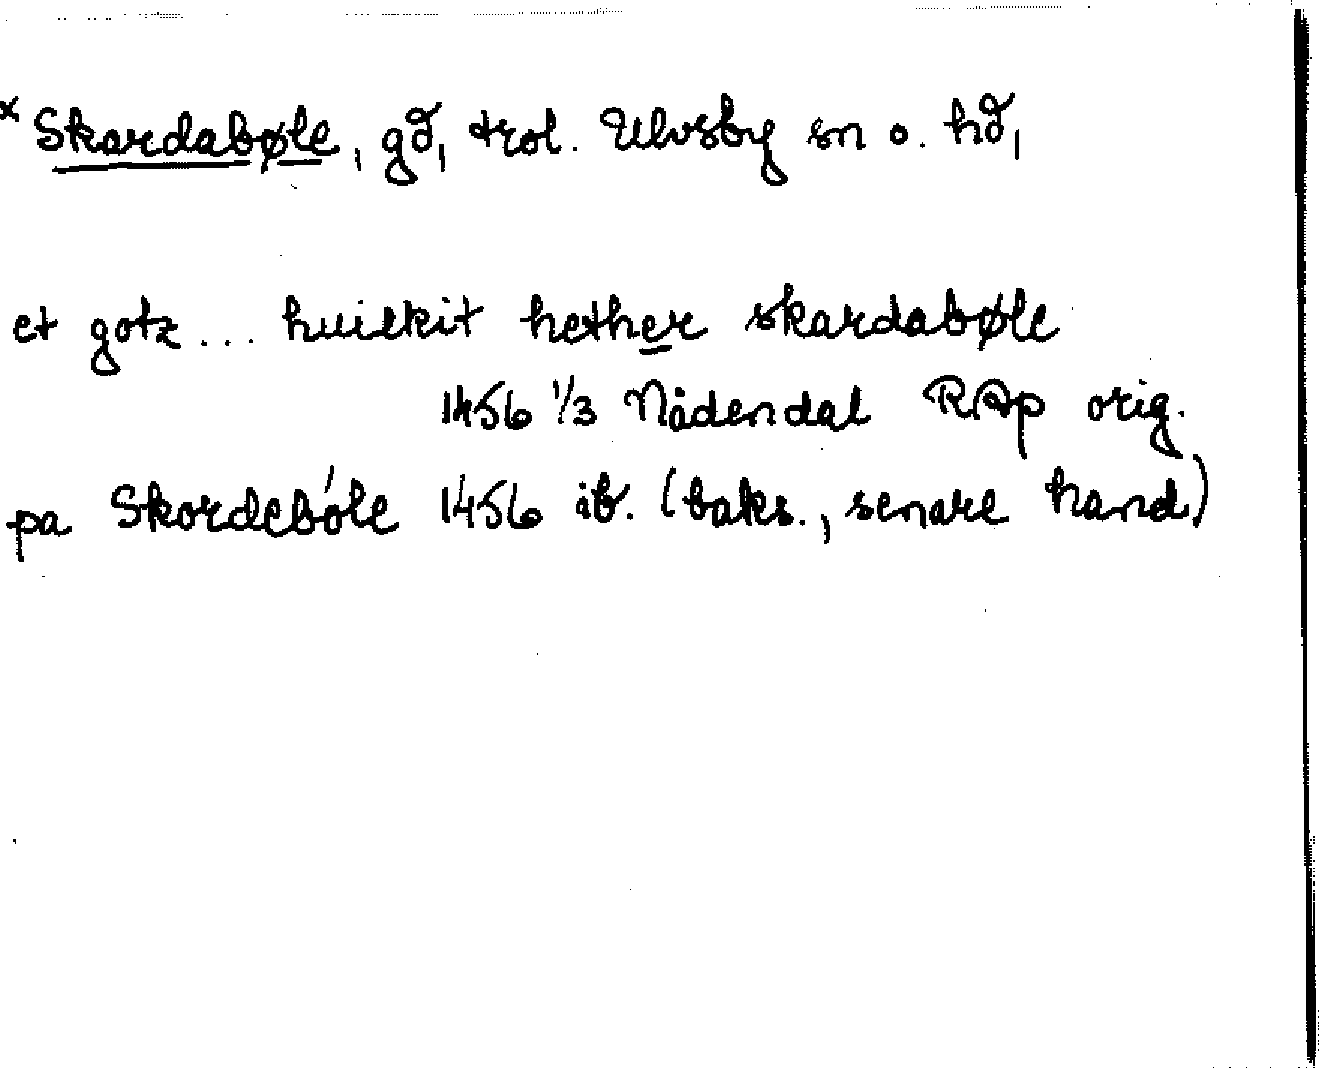 x Skardabøle, gd, trol. Ulvsby sn o. hd,
et gotz ... huilkit hether skardabøle
1456 1/3 Nådendal RAp orig.
pa Skordebóle 1456 ib. (baks., senare hand)